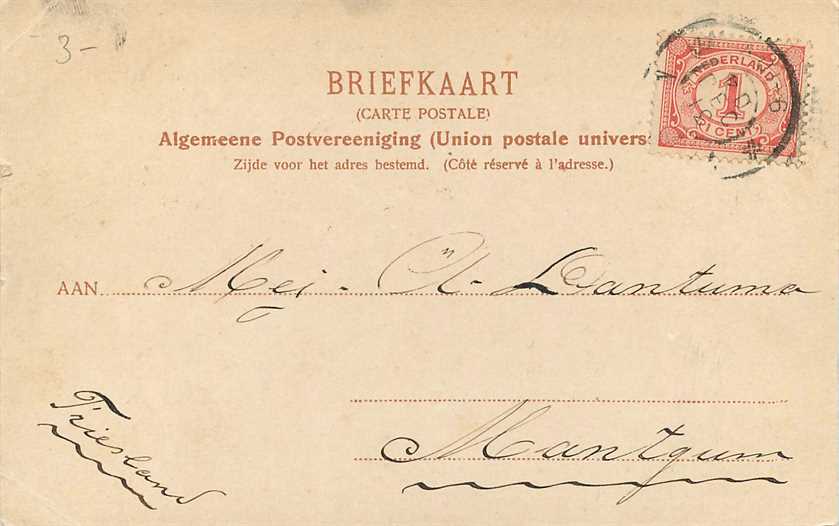 3-
BRIEFKAART
(CARTE POSTALE)
Algemeene Postvereeniging (Union postale univers
Zijde voor het adres bestemd. (Côté réservé à l'adresse.)
NEDERLAND
1
1 CENT
AAN Mej. A. Dantuma
Mantgum
Friesland